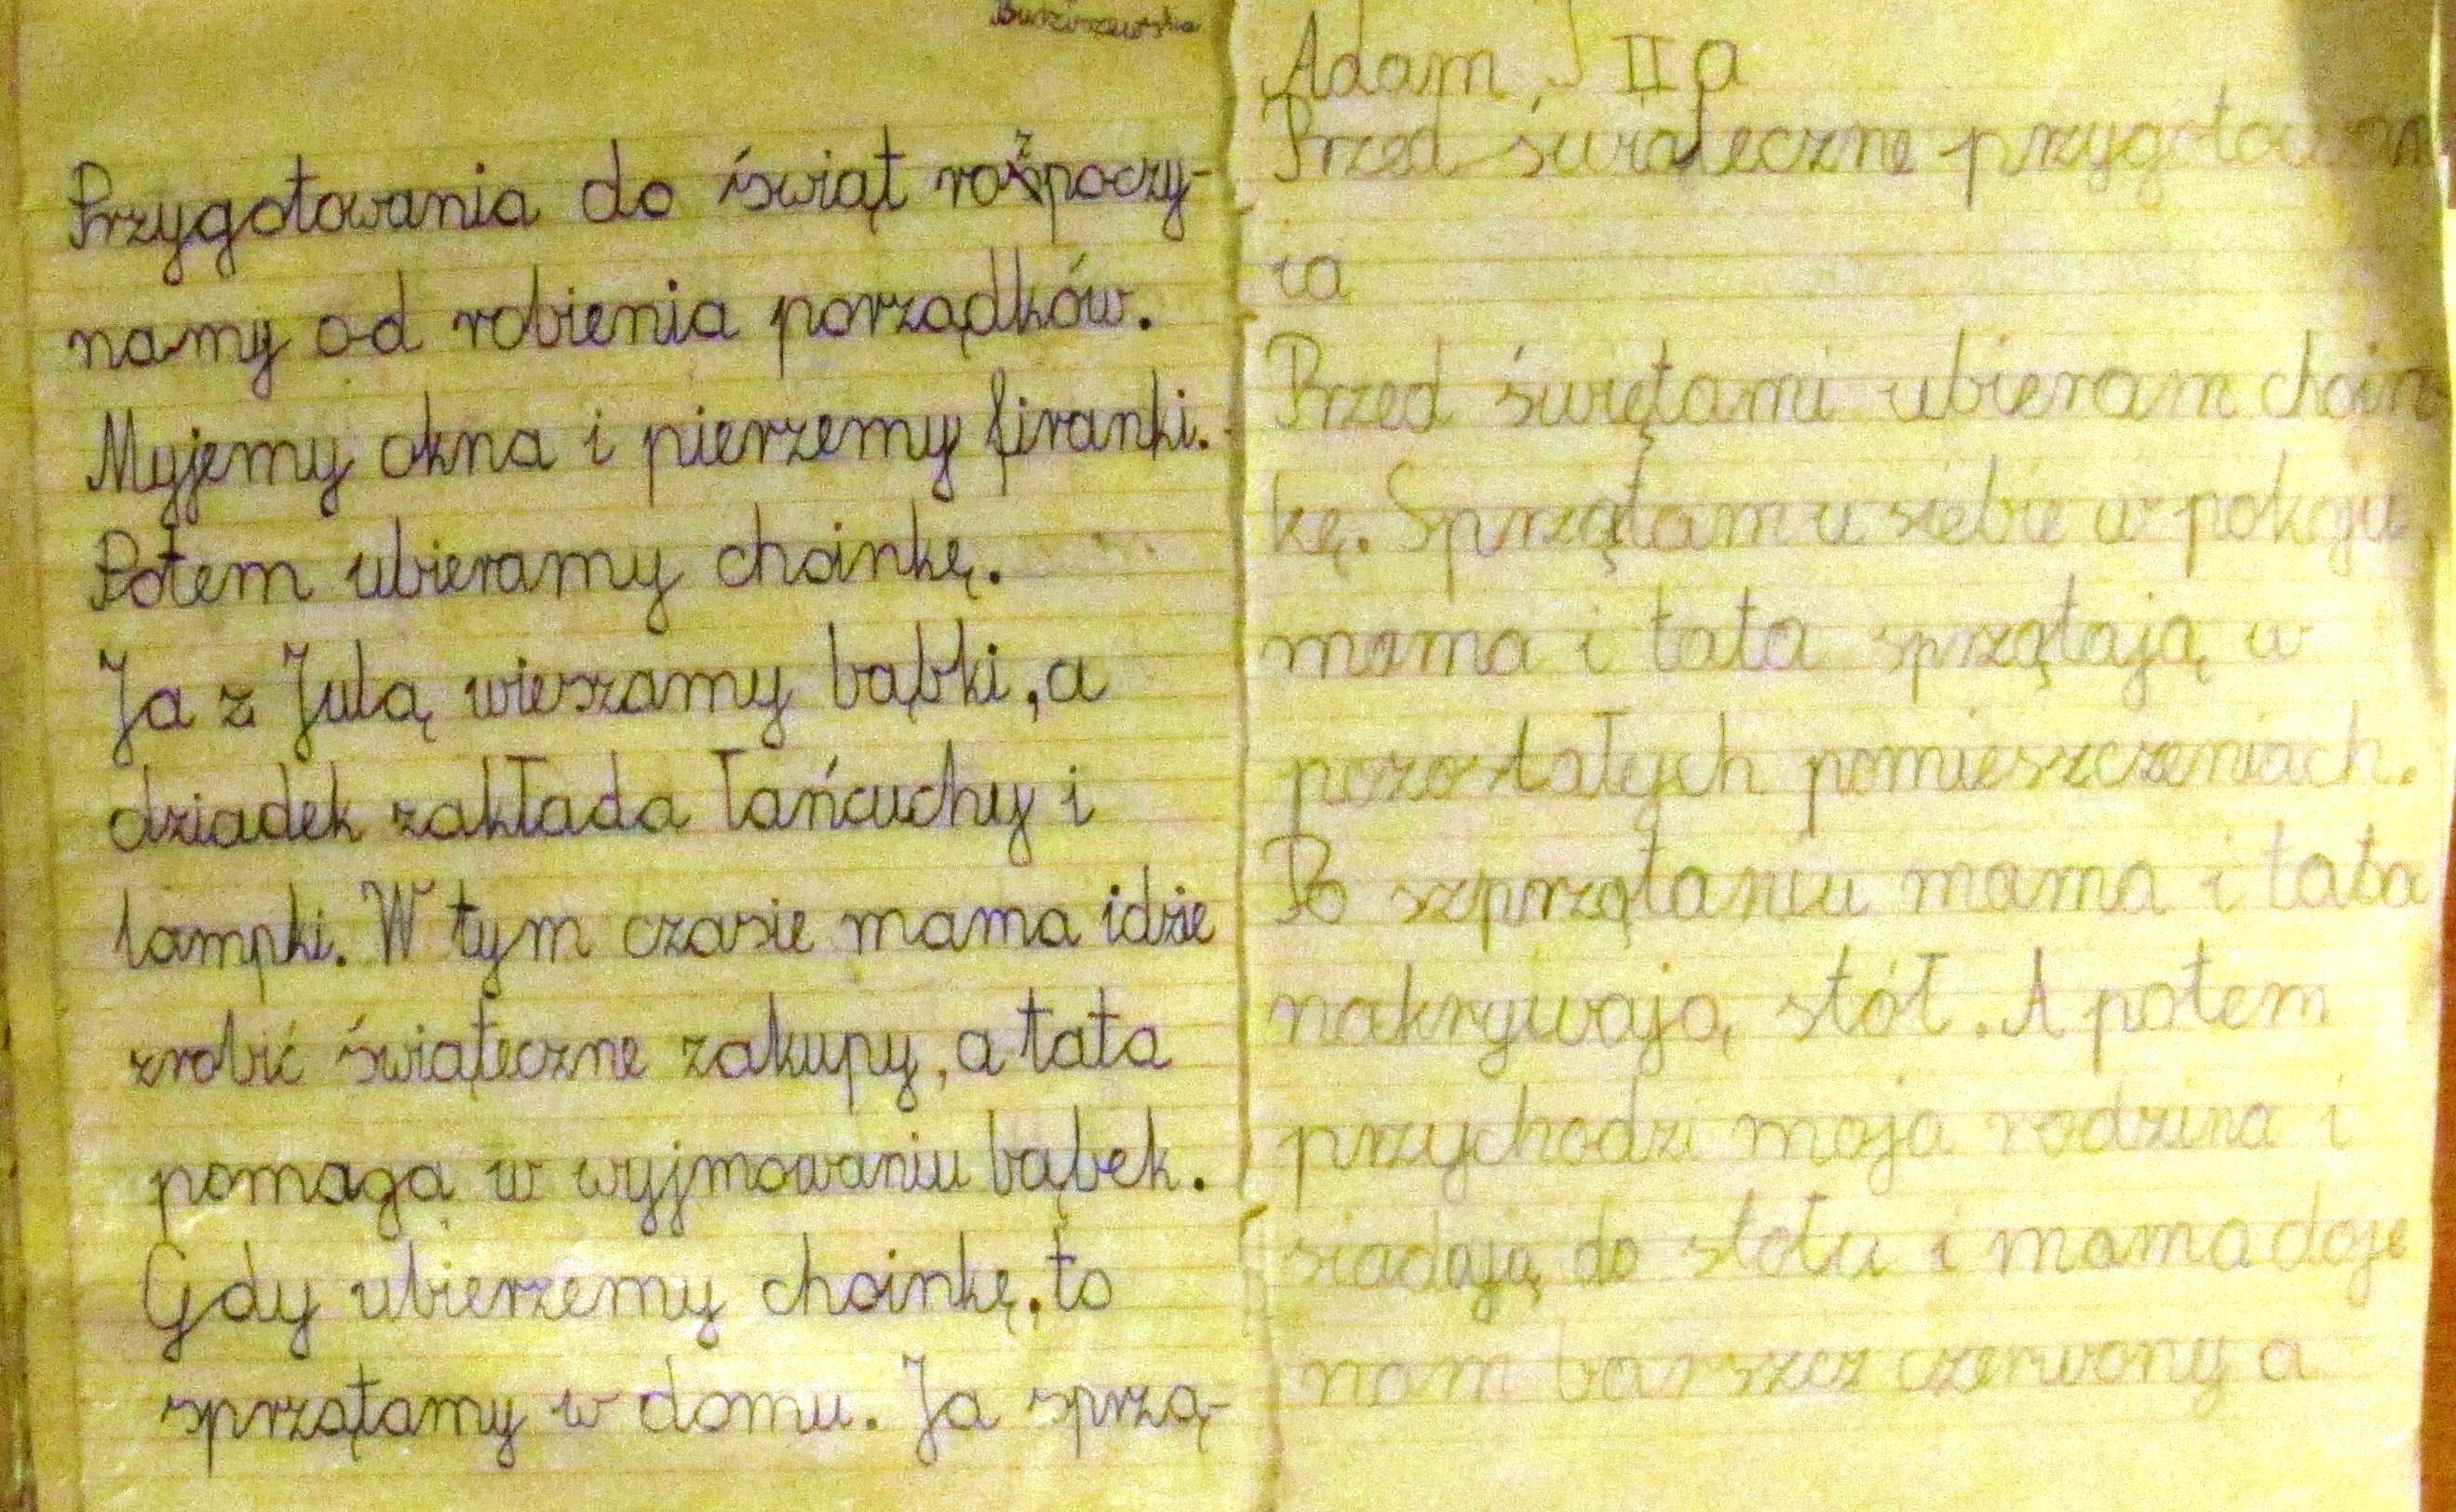 Budziszewska
Przygotowania do świąt rozpoczy-
namy od robienia porządków.
Myjemy okna i pierzemy firanki.
Potem ubieramy choinkę.
Ja z Julą wieszamy bąbki, a
dziadek zakłada łańcuchy i
lampki. W tym czasie mama idzie
zrobić świąteczne zakupy, a tata
pomaga w wyjmowaniu bąbek.
Gdy ubierzemy choinkę, to
sprzątamy w domu. Ja sprzą-
Adam J II a
Przed świąteczne przygotowan
ia
Przed świętami ubieram choin-
kę. Sprzątam u siebie w pokoju
mama i tata sprzątają w
pozostałych pomieszczeniach.
Po szprzątaniu mama i tata
nakrywają stół. A potem
przychodzi moja rodzina i
siadają do stołu i mama daje
nam barszcz czerwony a